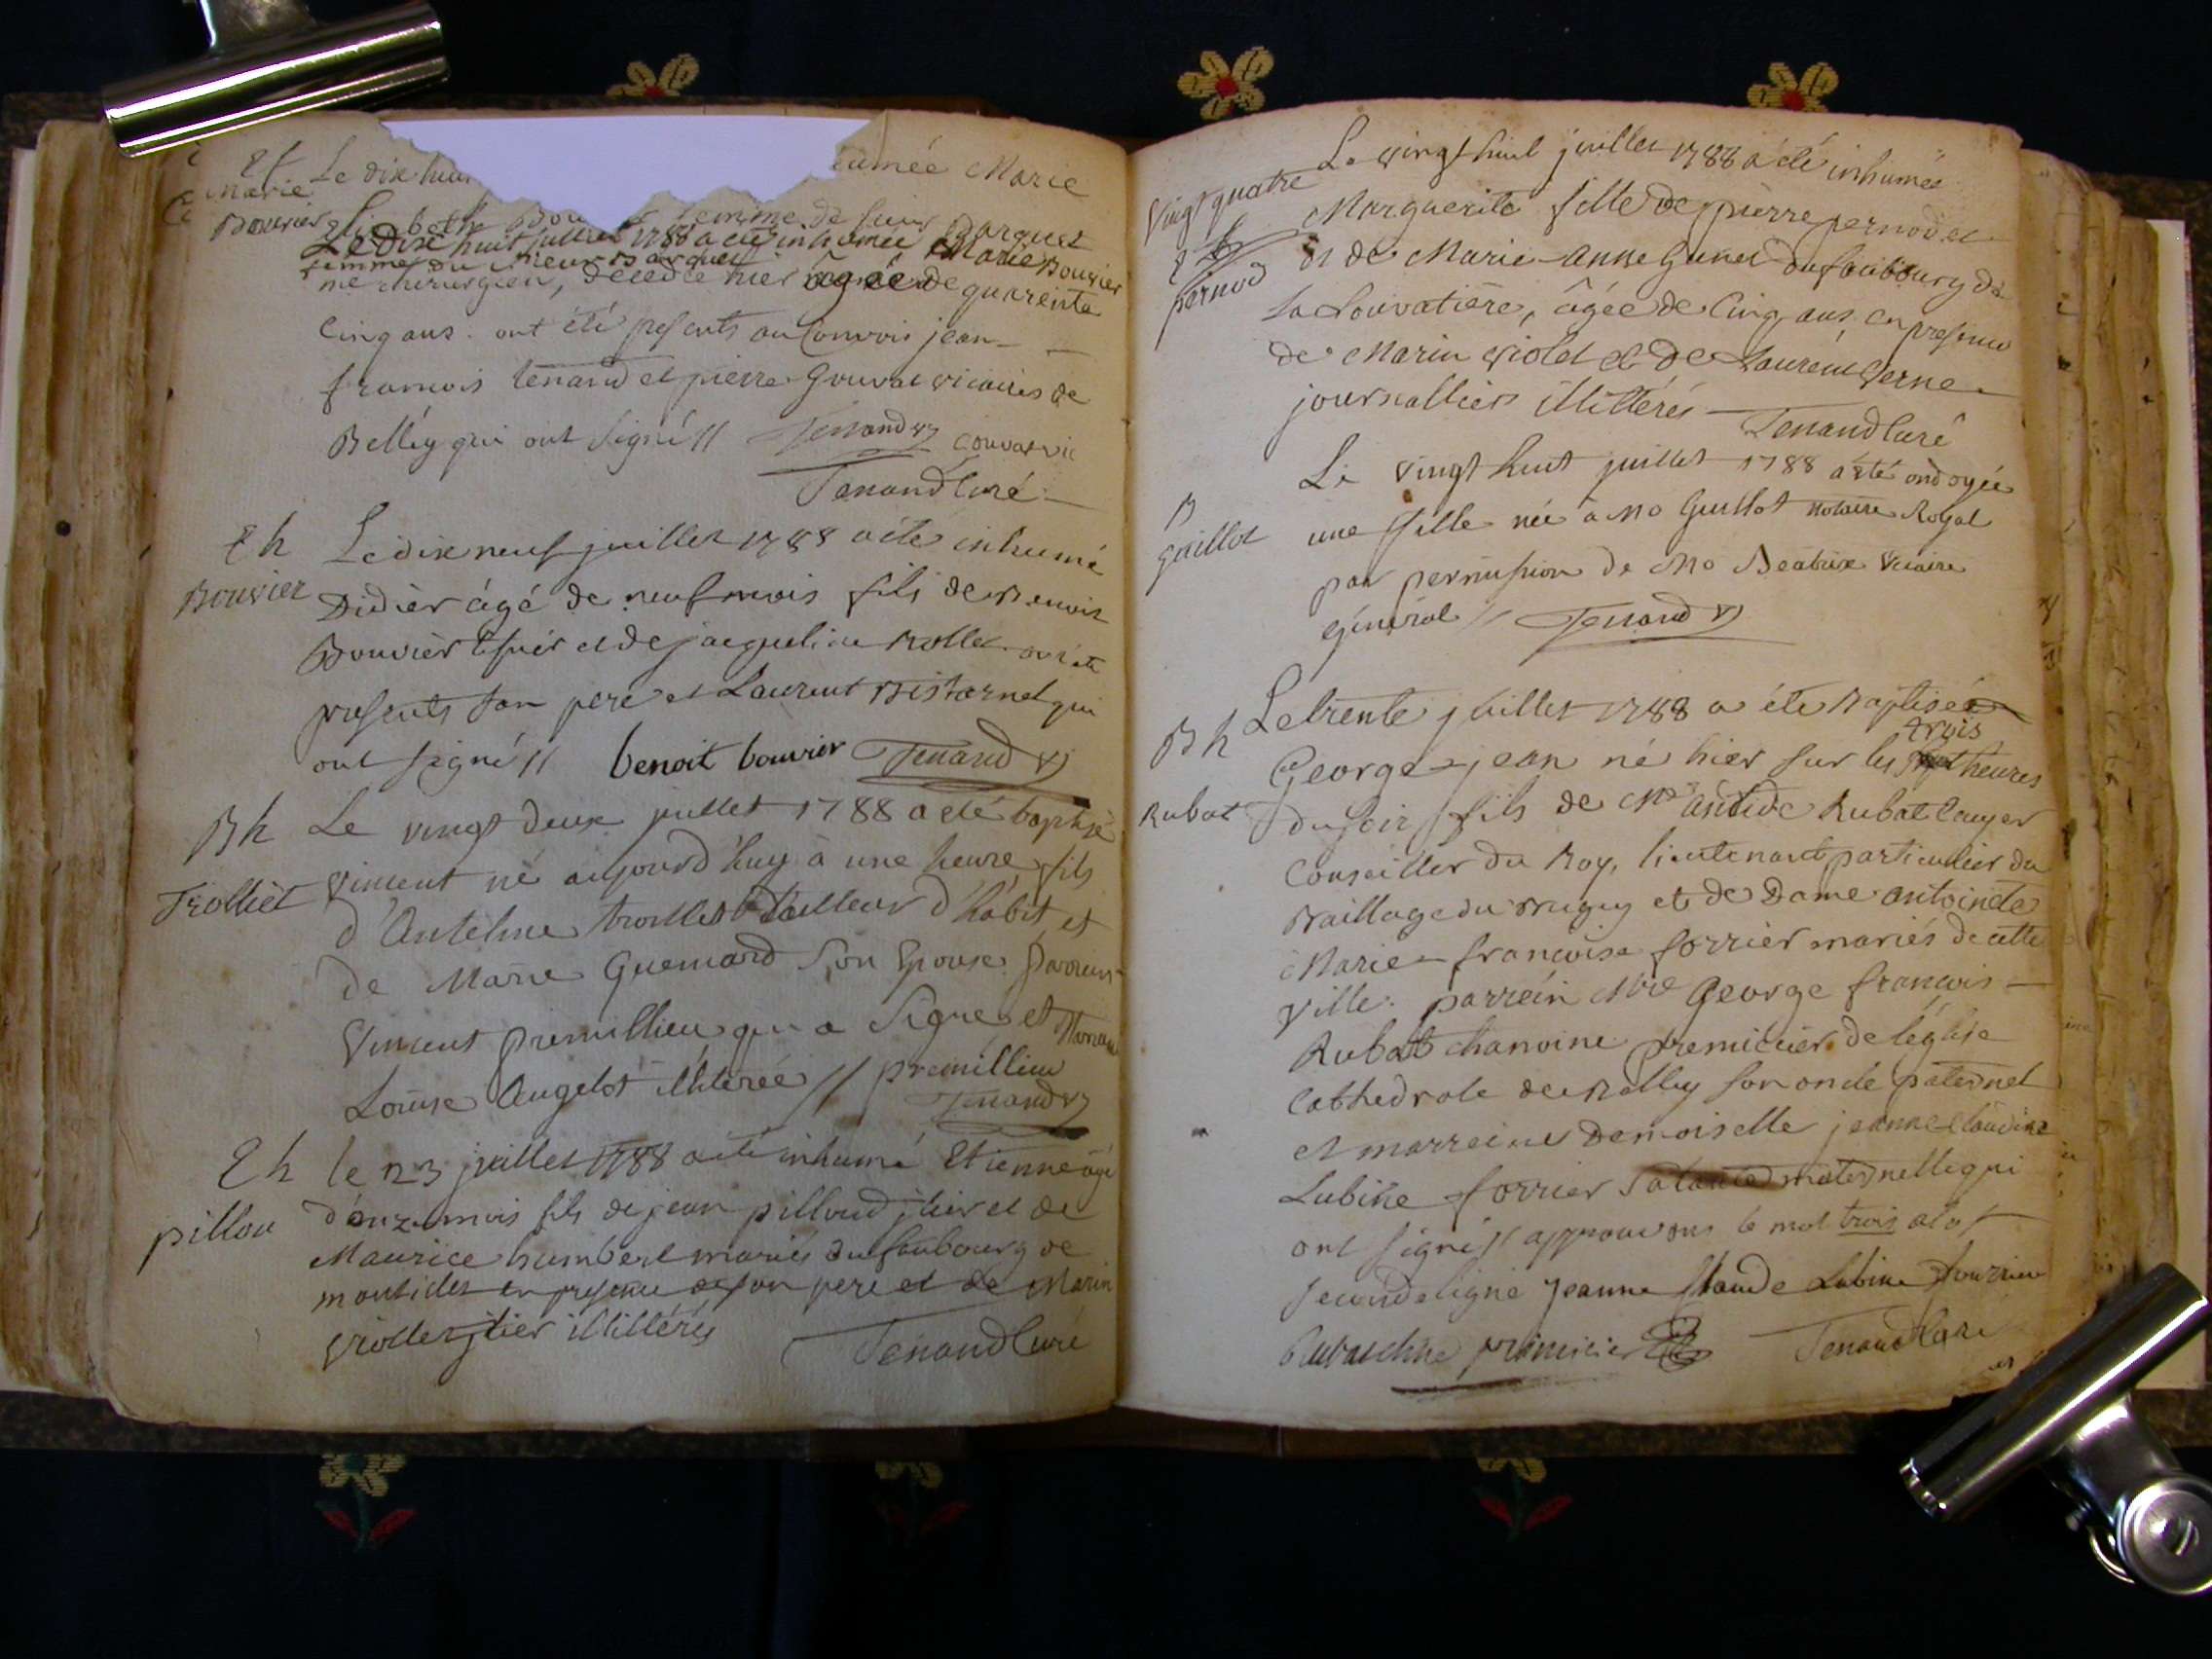 Et Le dix huit umée Marie
Marie
Bouvier Elisabeth Bou femme de sieur Barquet
Le Dix huit juillet 1788 a été inhumée Marie Bouvier
femme du sieur Barquet
me chirurgien, décédée hier âgée de quarente
Cinq ans. ont été presents au Convois jean
francois tenand et pierre Gouvat vicaires de
Belley qui ont signé // Tenand v Couvat vic
Tenand Curé
Eh Le dix neuf juillet 1788 a été inhumé
Bouvier Didier âgé de neuf mois fils de Benoit
Bouvier et de jacqueline Rollet ont été
presents son pere et Laurent Bistornel qui
ont signé // benoit bouvier Tenand v
Bh Le vingt deux juillet 1788 a été baptisé
Trolliet Vincent né aujourd'huy à une heure, fils
d'Antelme trolliet Tailleur d'habit, et
de Marie Guemard son Epouse parrein
Vincent premillieu qui a signé et Marraine
Louise Angelot illiterée // premillieu
Tenand v
Eh le 23 juillet 1788 a été inhumé Etienne âgé
pillou d'onze mois fils de jean pilloud jlier et de
Maurice humbert mariés du faubourg de
montillet en presence de son pere et de Marin
violet jlier illitérés Tenand Curé
Le vingt huit juillet 1788 a été inhumée
Vingt quatre
Marguerite fille de pierre pernod et
Eh
pernod et de Marie Anne Gunet du faubourg de
la Louvatière, âgée de Cinq ans en presence
de Marin violet et de Laurent Verne
journalliers illitterés Tenand Curé
Le vingt huit juillet 1788 a été ondoyée
B
Guillot une fille née à Me Guillot notaire Royal
par permission de Mr Beatrix Vicaire
général // Tenand v
Bh Le trente juillet 1788 a été Baptisé
trois
George jean né hier sur les sept heures
Rubat du soir fils de Mr antide Rubat lauyer
Conseiller du Roy, lieutenant particulier du
Baillage du Bugey et de Dame antoinete
Marie francoise forrier mariés de cette
Ville. parrein Mre George francois
Rubat chanoine premicier de l'église
Cathedrale de Belley son oncle paternel
et marreine Demoiselle jeanne claudine
Lubine forrier sa tante maternelle qui
ont signé // approuvons le mot trois a la
seconde ligne Jeanne Claude Lubine fourrier
Rubat chne primicier Tenand Curé